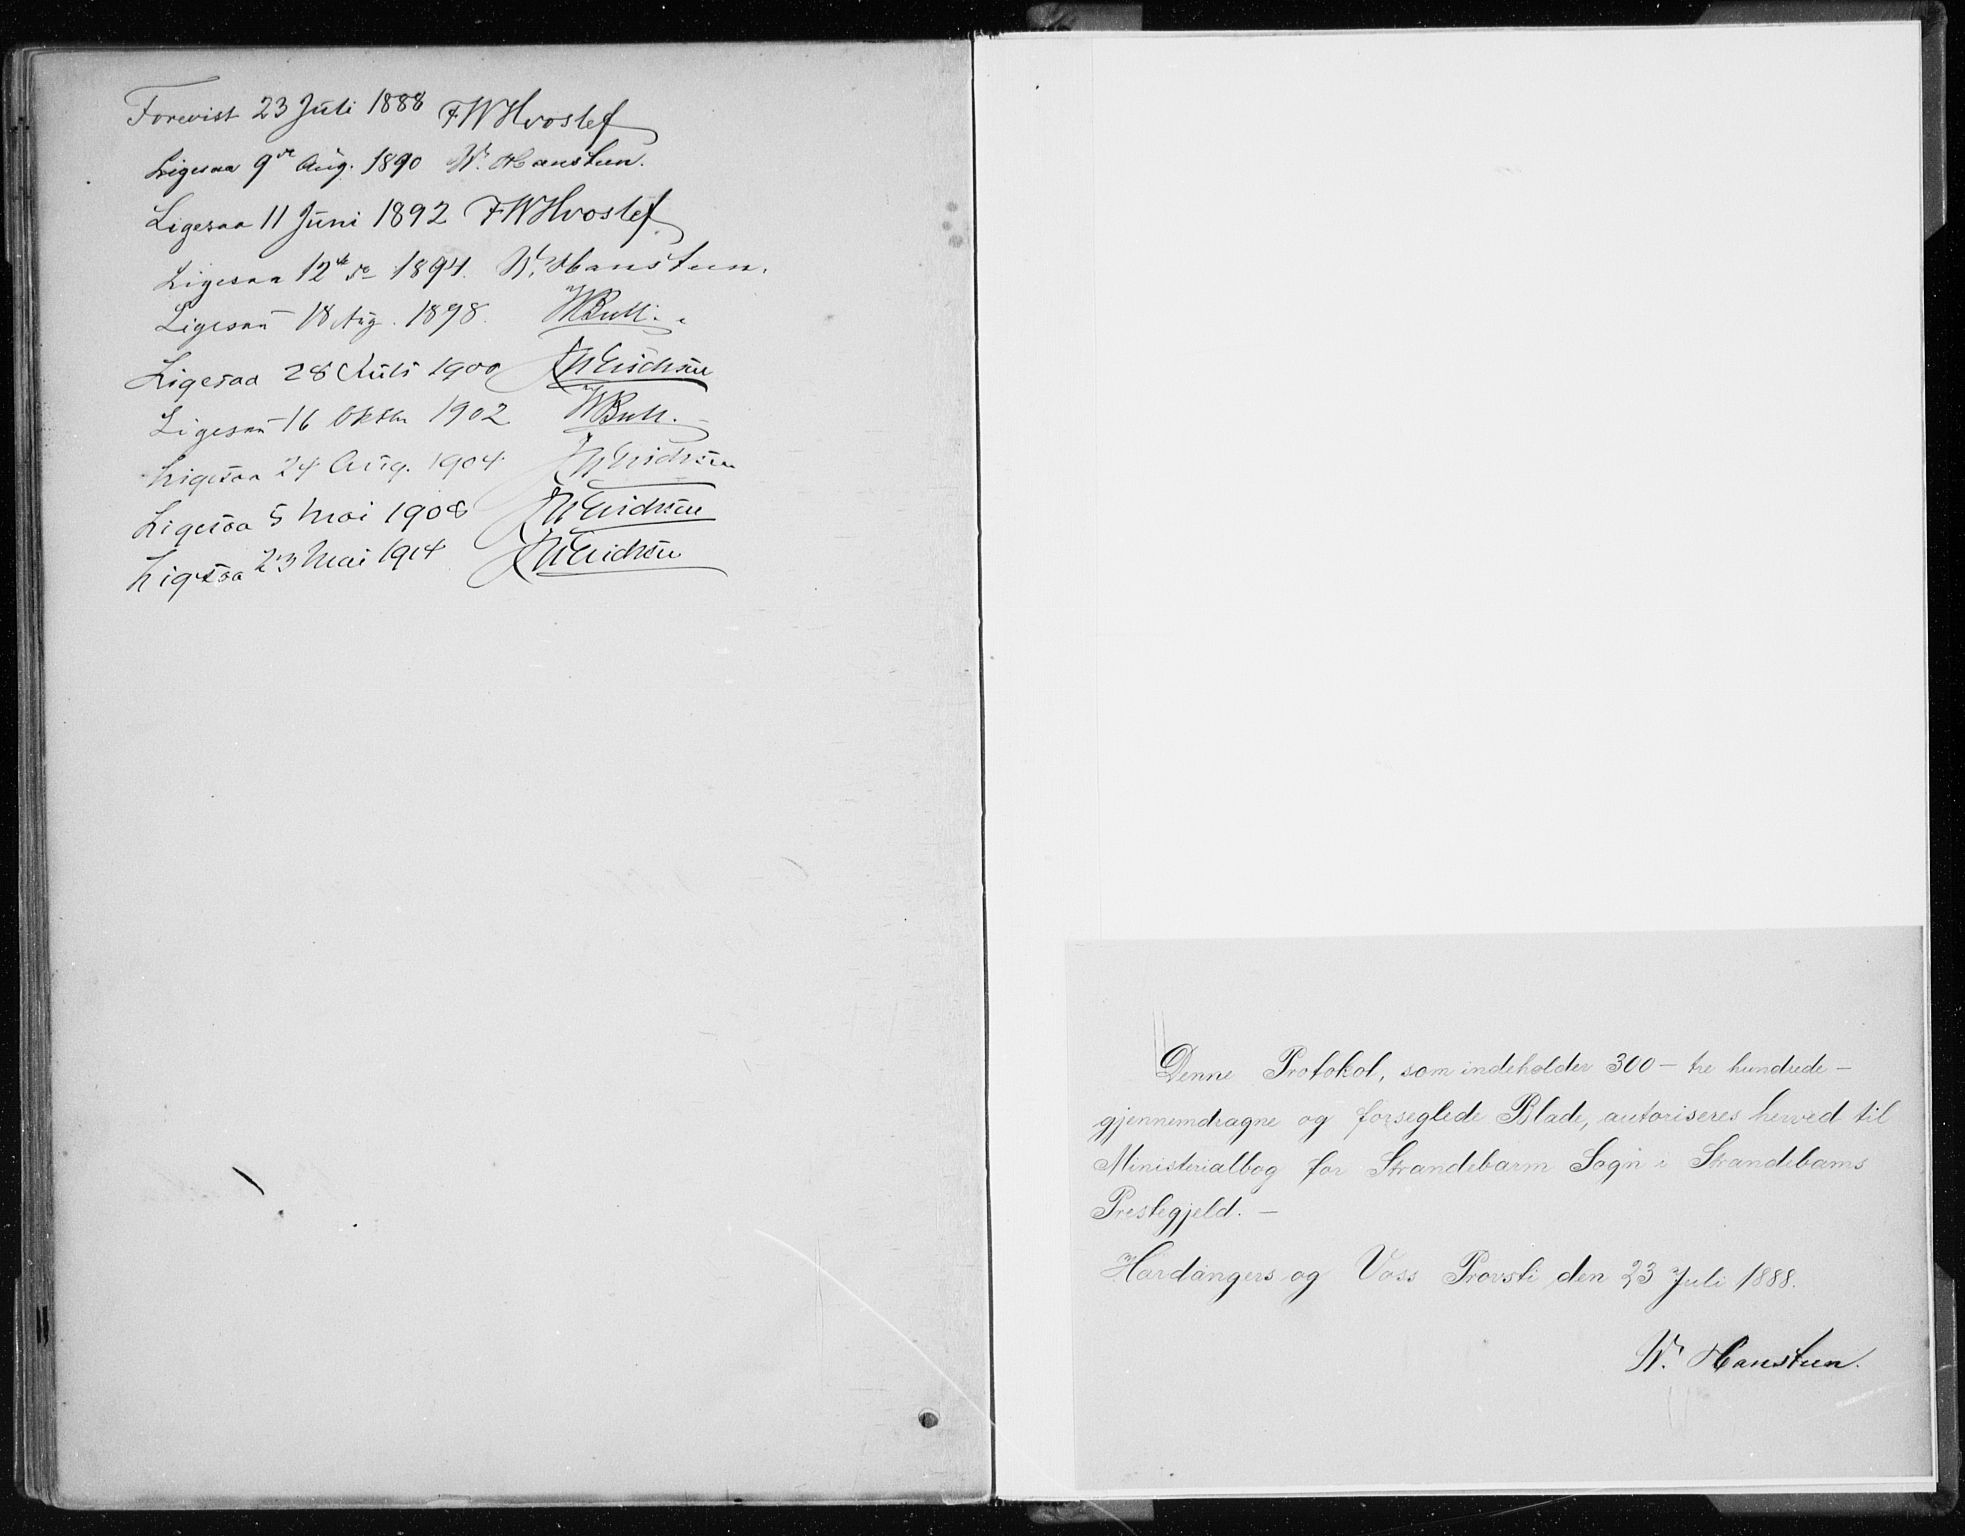 Forevist 23 Juli 1888 FW Hvoslef
Ligesaa 9de Aug. 1890 W. Hansteen.
Ligesaa 11 Juni 1892 FW Hvoslef
Ligesaa 12te do 1894. W. Hansteen.
Ligesaa 18 Aug. 1898. Bull.
Ligesaa 28 Juli 1900 Erichsen
Ligesaa 16 Oktbr 1902 Bull.
Ligesaa 24 Aug. 1904 Erichsen
Ligesaa 5 Mai 1908 Erichsen
Ligesaa 23 Mai 1914 Erichsen
Denne Protokol, som indeholder 300 – tre hundrede –
gjennemdragne og forseglede Blade, autoriseres herved til
Ministerialbog for Strandebarm Sogn i Strandebarms
Prestegjeld. –
Hardangers og Voss Provsti den 23 Juli 1888.
W. Hansteen.